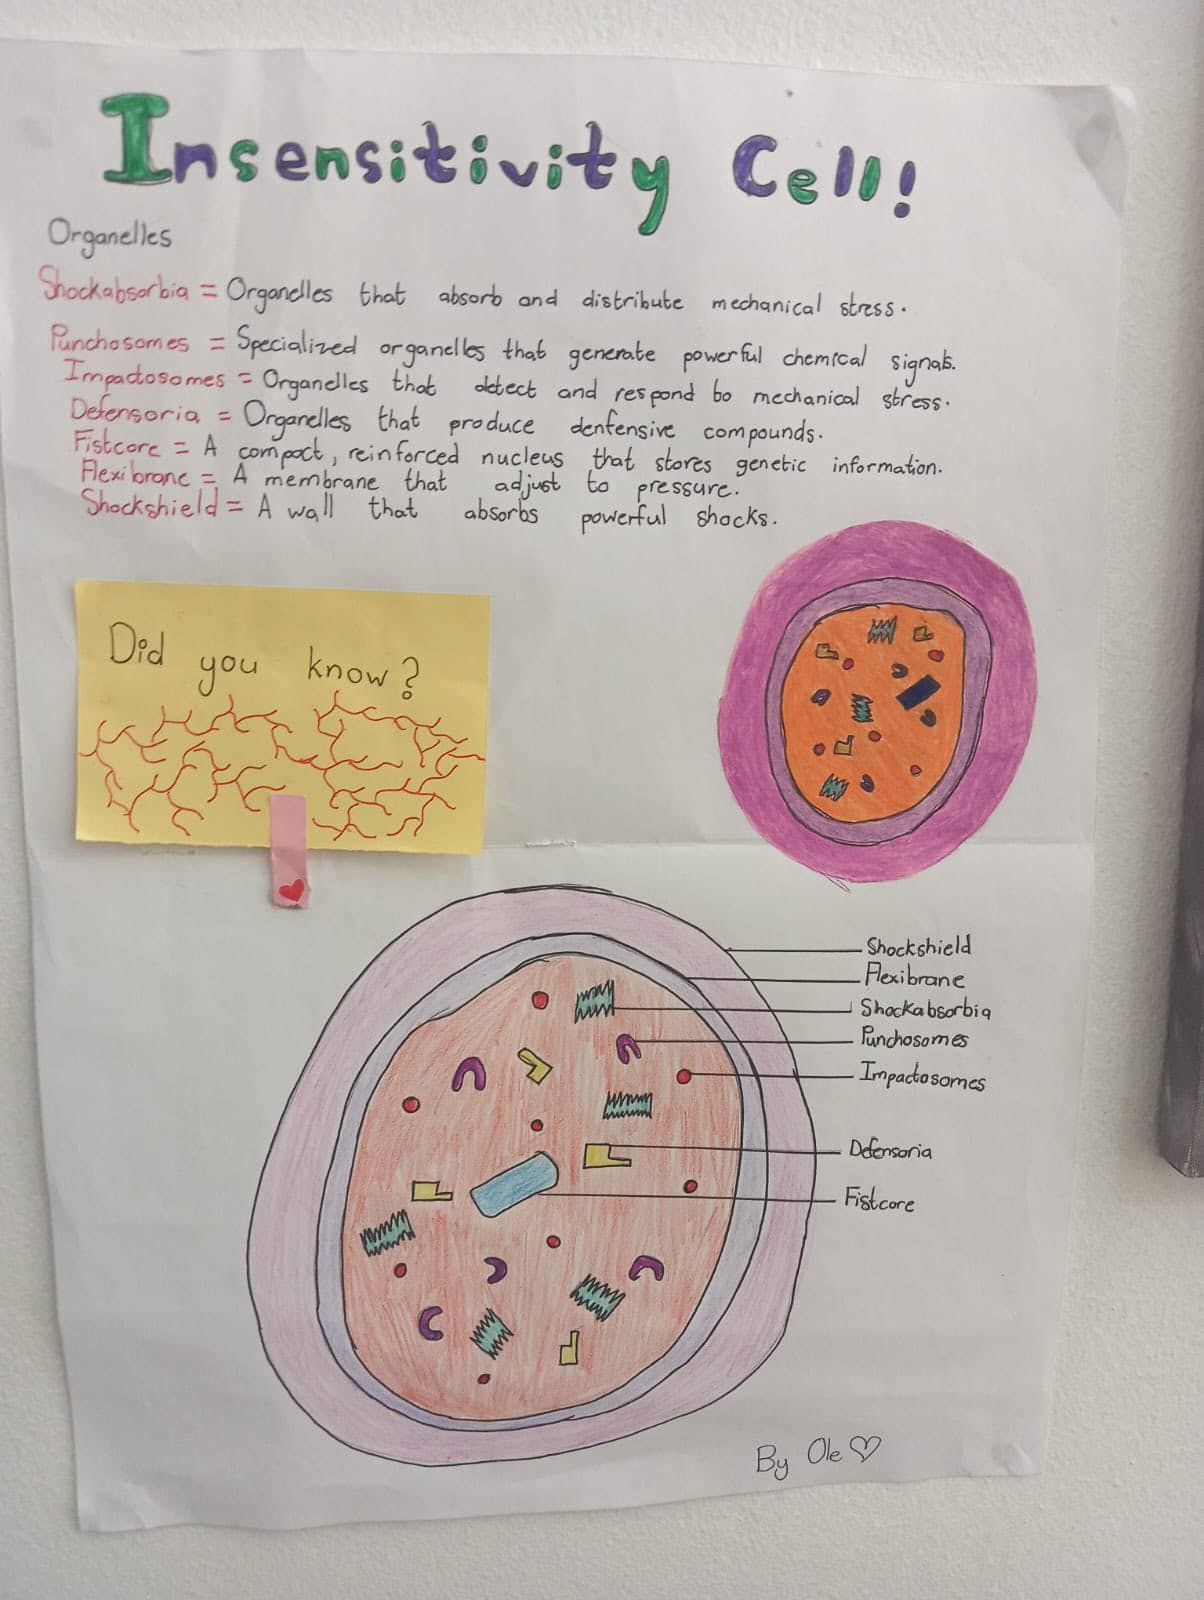 Insensitivity Cell!
Organelles
Shockabsorbia = Organelles that absorb and distribute mechanical stress.
Punchosomes = Specialized organelles that generate powerful chemical signals.
Impactosomes = Organelles that detect and respond to mechanical stress.
Defensoria = Organelles that produce denfensive compounds.
Fistcore = A compact, reinforced nucleus that stores genetic information.
Flexibrane = A membrane that adjust to pressure.
Shockshield = A wall that absorbs powerful shocks.
Did you know?
Shockshield
Flexibrane
Shockabsorbia
Punchosomes
Impactosomes
Defensoria
Fistcore
By Ole